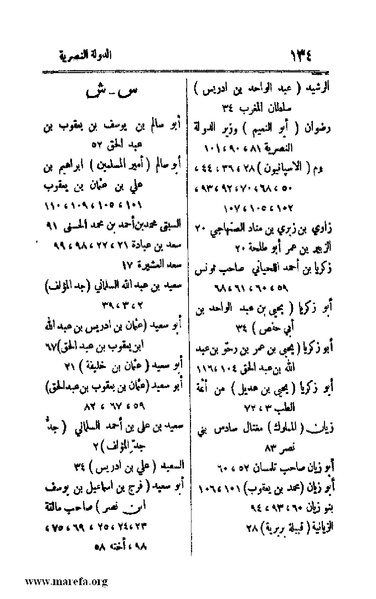 ١٣٤
الدولة النصرية
الرشيد ( عبد الواحد بن ادريس )
سلطان المغرب ٣٤
رضوان ( أبو النعيم ) وزير الدولة
النصرية ٨١ ، ٩٠ ، ١٠١
روم ( الاسبانيون ) ٢٨ ، ٣٦ ، ٤٤ ،
٥٠ ، ٦٨ ، ٧٠ ، ٩٢ ، ٩٣ ،
١٠٢ ، ١٠٥ ، ١٠٧
زاوي بن زيري بن مناد الصنهاجي ٢٠
الزبير بن عمر أبو طلحة ٢٠
زكريا بن أحمد اللحياني صاحب تونس
٥٩ ، ٦٠ ، ٦١ ، ٦٨
أبو زكريا ( يحيى بن عبد الواحد بن
أبي حفص ) ٣٤
أبو زكريا ( يحيى بن عمر بن رحو بن عبد
الله بن عبد الحق ١٠٤ ، ١١٦
أبو زكريا ( يحيى بن هذيل ) من أئمة
الطب ٣ ، ٧٢
زيان ( المملوك ) مغتال سادس بني
نصر ٨٣
أبو زيان صاحب تلمسان ٥٢ ، ٦٠
أبو زيان ( محمد بن يعقوب ) ١٥١ ، ١٠٦
بنو زيان ٦٠ ، ٩٣ ، ٩٤
الزيانية ( قبيلة بربرية ) ٢٨
س - ش
أبو سالم بن يوسف بن يعقوب بن
عبد الحق ٥٢
أبو سالم ( أمير المسلمين ) ابراهيم بن
علي بن عثمان بن يعقوب
١٠١ ، ١٠٥ ، ١٠٩ ، ١١٠
السبتي محمد بن أحمد بن محمد الحسني ٩١
سعد بن عبادة ٢١ ، ٢٢ ، ٩٨ ، ٩٩
سعد العشيرة ١٧
سعيد بن عبد الله السلماني ( جد المؤلف )
٢ ، ٣ ، ٣٩
أبو سعيد ( عثمان بن ادريس بن عبد الله
ابن يعقوب بن عبد الحق ) ٦٧
أبو سعيد ( عثمان بن خليفة ) ٢١
أبو سعيد ( عثمان بن يعقوب بن عبد الحق )
٥٩ ، ٦٧ ، ٨٢
سعيد بن علي بن أحمد السلماني ( جد
جد المؤلف ) ٢
السعيد ( علي بن ادريس ) ٣٤
أبو سعيد ( فرج بن اسماعيل بن يوسف
ابن نصر ) صاحب مالقة
٢٣ ، ٢٤ ، ٢٥ ، ٦٩ ، ٧٥ ،
٩٨ ، أخته ٥٨
www.marefa.org